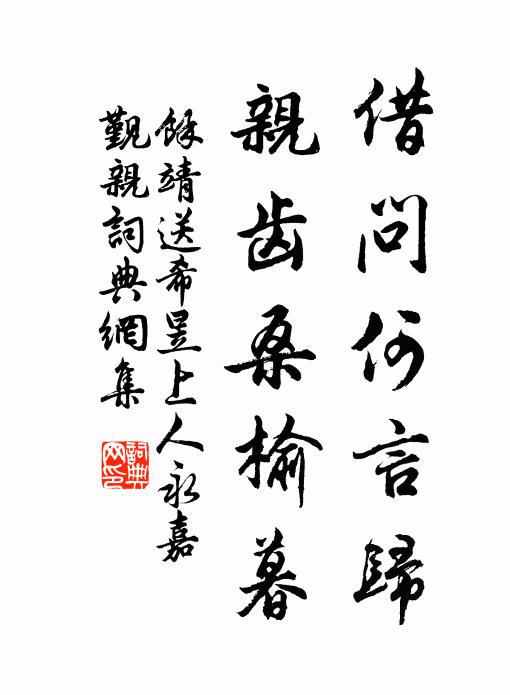 借问何言歸
親齿桑榆暮
馀靖送希昱上人永嘉
觐親詞典網集
詞典網印